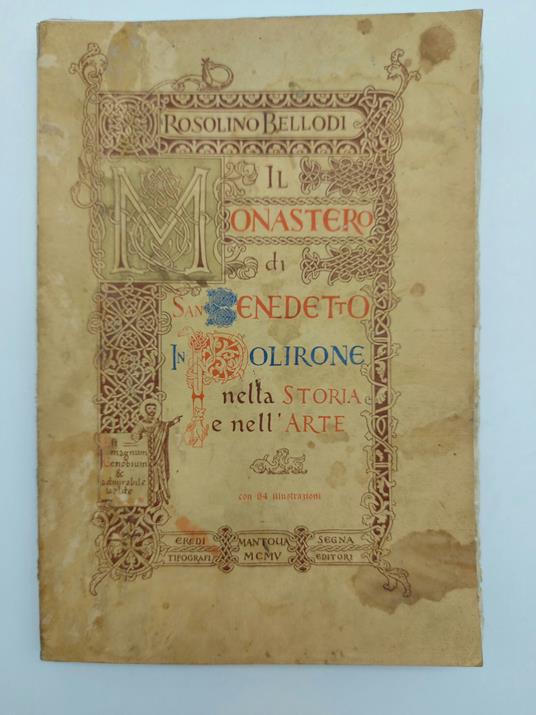 ROSOLINO BELLODI
IL
MONASTERO
di
SAN BENEDETTO
IN POLIRONE
nella STORIA
e nell'ARTE
magnum
Cenobium
&
admirabile
con 84 illustrazioni
EREDI MANTOUA SEGNA
TIPOGRAFI MCMV EDITORI